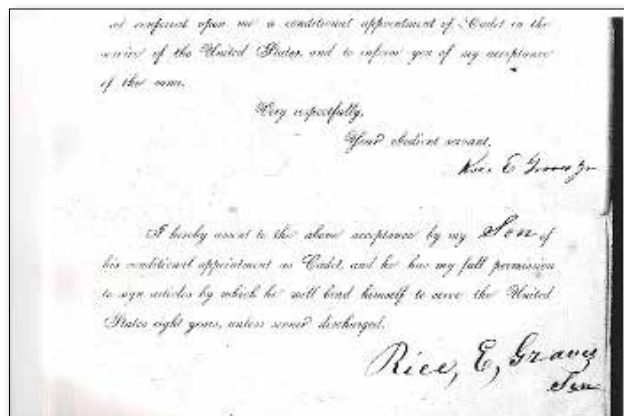 as conferred upon me a conditional appointment of Cadet in the
service of the United States, and to inform you of my acceptance
of the same.
Very respectfully,
Your obedient servant,
Rice E Graves Jr
I hereby assent to the above acceptance by my Son of
his conditional appointment as Cadet, and he has my full permission
to sign articles by which he will bind himself to serve the United
States eight years, unless sooner discharged.
Rice, E, Graves
Sen